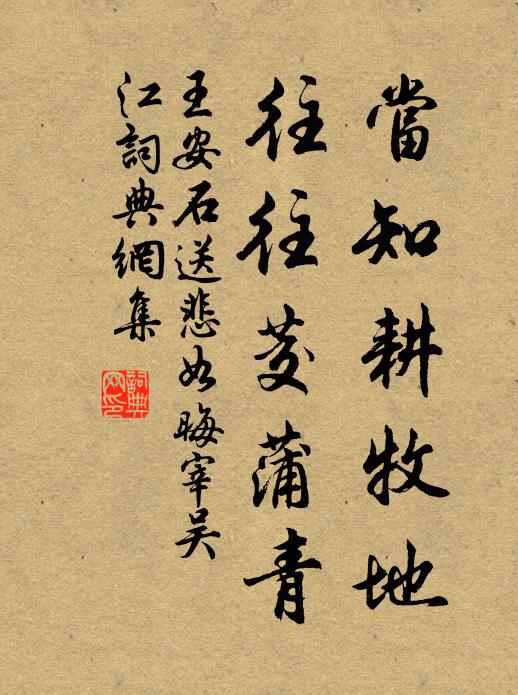 當知耕牧地
往往茭蒲青
王安石送悲如晦宰吳
江詞典網集
詞典網印